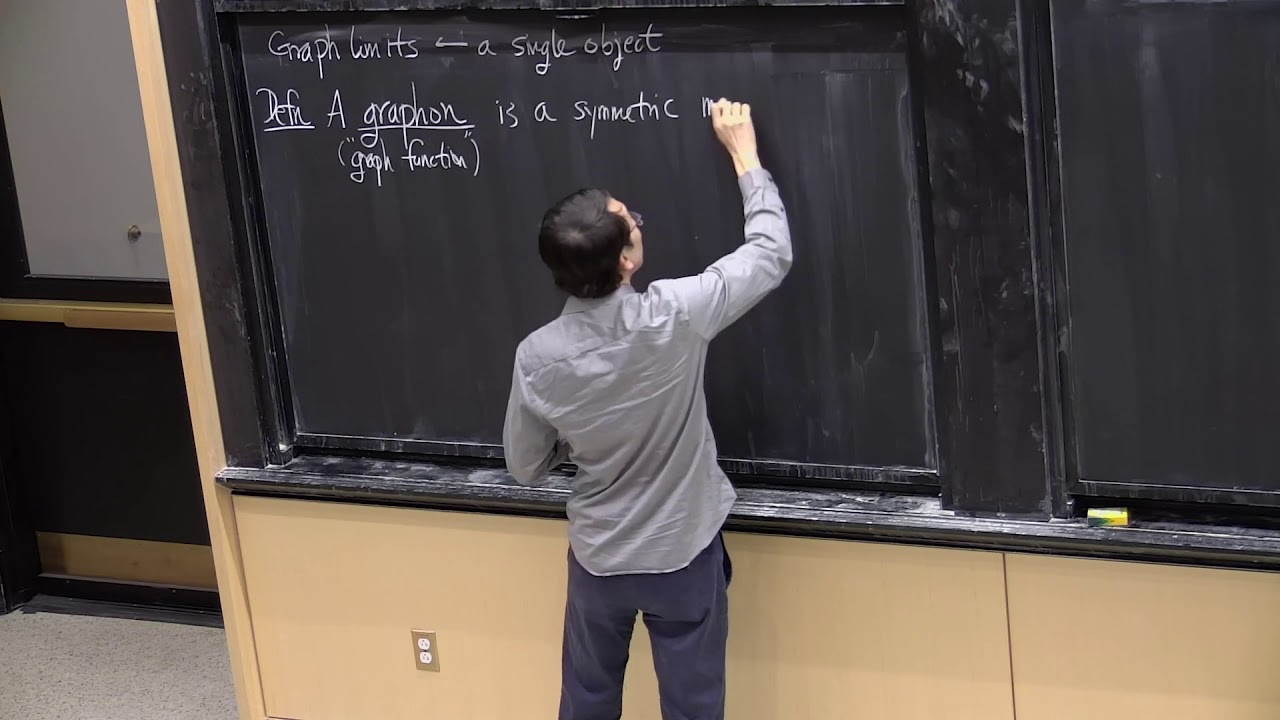 Graph limits ← a single object
Defn A graphon is a symmetric m
("graph function")